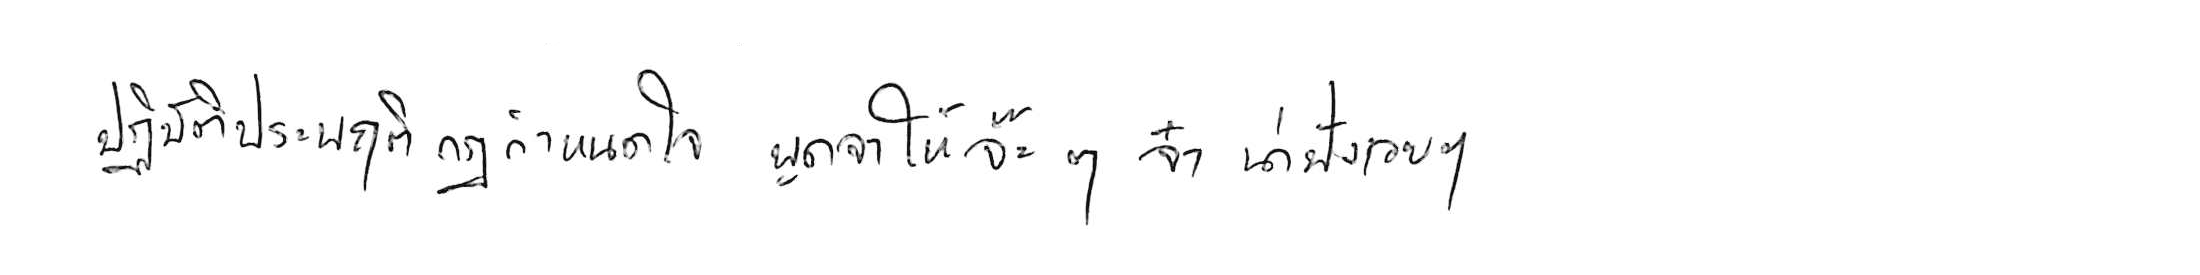 ปฏิบัติประพฤติกฎกำหนดใจ พูดจาให้จ๊ะ ๆ จ๋า น่าฟังเอยฯ